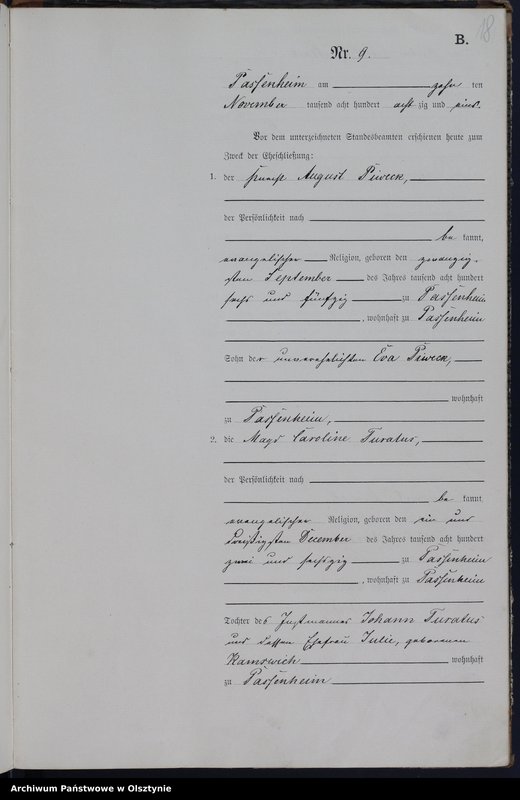 18
B.
Nr. 9.
Passenheim am zehn ten
November tausend acht hundert acht zig und eins.
Vor dem unterzeichneten Standesbeamten erschienen heute zum
Zweck der Eheschließung:
1. der Knecht August Piweck,
der Persönlichkeit nach
be kannt,
evangelischer Religion, geboren den zwanzig-
sten September des Jahres tausend acht hundert
sechs und fünfzig zu Passenheim
, wohnhaft zu Passenheim
Sohn der unverehelichten Eva Piweck,
wohnhaft
zu Passenheim,
2. die Magd Caroline Turatus,
der Persönlichkeit nach
be kannt,
evangelischer Religion, geboren den ein und
dreißigsten December des Jahres tausend acht hundert
zwei und sechszig zu Passenheim
, wohnhaft zu Passenheim
Tochter des Instmannes Johann Turatus
und dessen Ehefrau Julie, geborenen
Kamswich wohnhaft
zu Passenheim
Archiwum Państwowe w Olsztynie